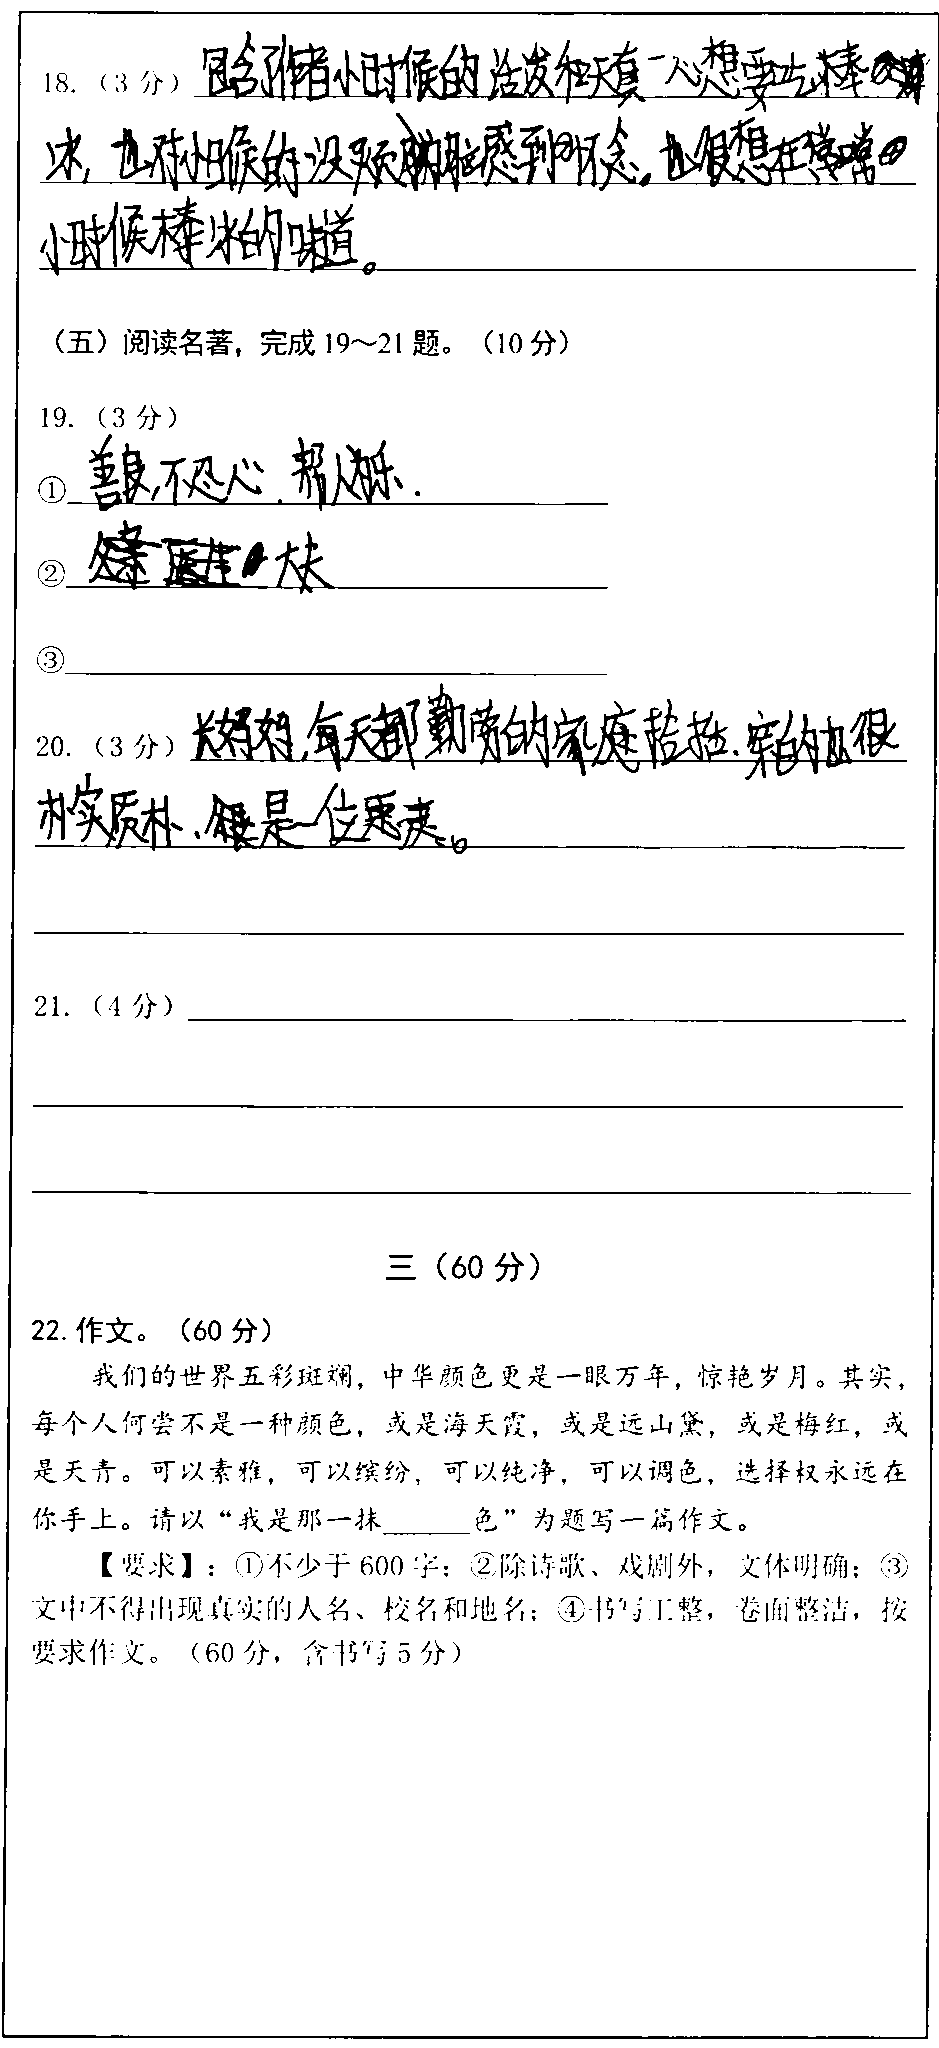 18. （3 分）包含了作者小时候的活发和天真一心想要吃棒
冰，也对小时候的没烦恼感到怀念。也很想在尝尝
小时候棒冰的味道。
（五）阅读名著，完成 19～21 题。（10 分）
19. （3 分）
① 善良,不忍心、帮人为乐.
② 大夫
③
20. （3 分）长妈妈,每天都勤劳的家庭 ,穿的也很
朴实质朴、是一位
21. （4 分）
三（60 分）
22. 作文。（60 分）
我们的世界五彩斑斓，中华颜色更是一眼万年，惊艳岁月。其实，
每个人何尝不是一种颜色，或是海天霞，或是远山黛，或是梅红，或
是天青。可以素雅，可以缤纷，可以纯净，可以调色，选择权永远在
你手上。请以“我是那一抹______色”为题写一篇作文。
【要求】：①不少于 600 字；②除诗歌、戏剧外，文体明确；③
文中不得出现真实的人名、校名和地名；④书写工整，卷面整洁，按
要求作文。（60 分，含书写 5 分）